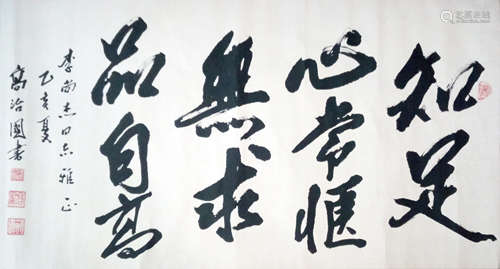 知足
心常愜
無求
品自高
李尚杰同志雅正
乙亥夏
高治國書